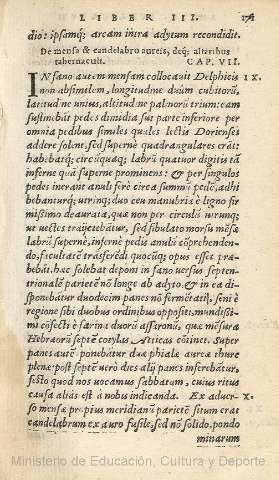 LIBER III. 174
dio: ipsamq; arcam intra adytum recondidit.
De mensa & candelabro aureis, deq; altaribus
tabernaculi. CAP. VII.
IN sano autem mensam collocauit Delphicis IX.
non absimilem, longitudine duûm cubitorû,
latitudine unius, altitudine palmorû trium: eam
sustinebât pedes dimidia sui parte inferiore per
omnia pedibus similes quales lectis Dorienses
addere solent, sed supernè quadrangulares erât:
habebatq; circûquaq; labrû quatuor digitis tâ
infernè quâ supernè prominens: & per singulos
pedes inerant anuli ferè circa summû pedê, adhi
bebanturq; utrinq; duo ceu manubria è ligno fir
mißimo deaurata, quæ non per circulû utrunq;
ut uectes traijcebâtur, sed fibulato morsu mêsæ
labrû supernè, infernè pedis anulû côprehenden-
do, facultatê transferêdi quocûq; opus esset præ-
bebât. hæc solebat deponi in fano uersus septen-
trionalê parietê nô longe ab adyto, & in ea di-
sponebâtur duodecim panes nô fermêtati, seni è
regione sibi duobus ordinibus oppositi, mundißi-
mi côfecti è farinæ duorû asserônû, quæ mêsura
Hebræorû septê cotylas Atticas côtinet. Super
panes autê ponebâtur duæ phialæ aureæ thure
plenæ: post septê uero dies alij panes inferebâtur,
festo quod nos uocamus sabbatum, cuius ritus
causa aliâs est a nobis indicanda. Ex aduer- X.
so mensæ propius meridianû parietê situm erat
candelabrum ex auro fusile, sed nô solido, pondo
minarum
Ministerio de Educación, Cultura y Deporte